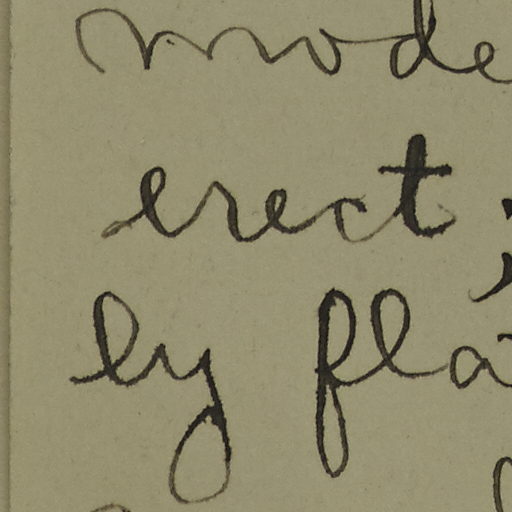 mode
erect;
ly fla